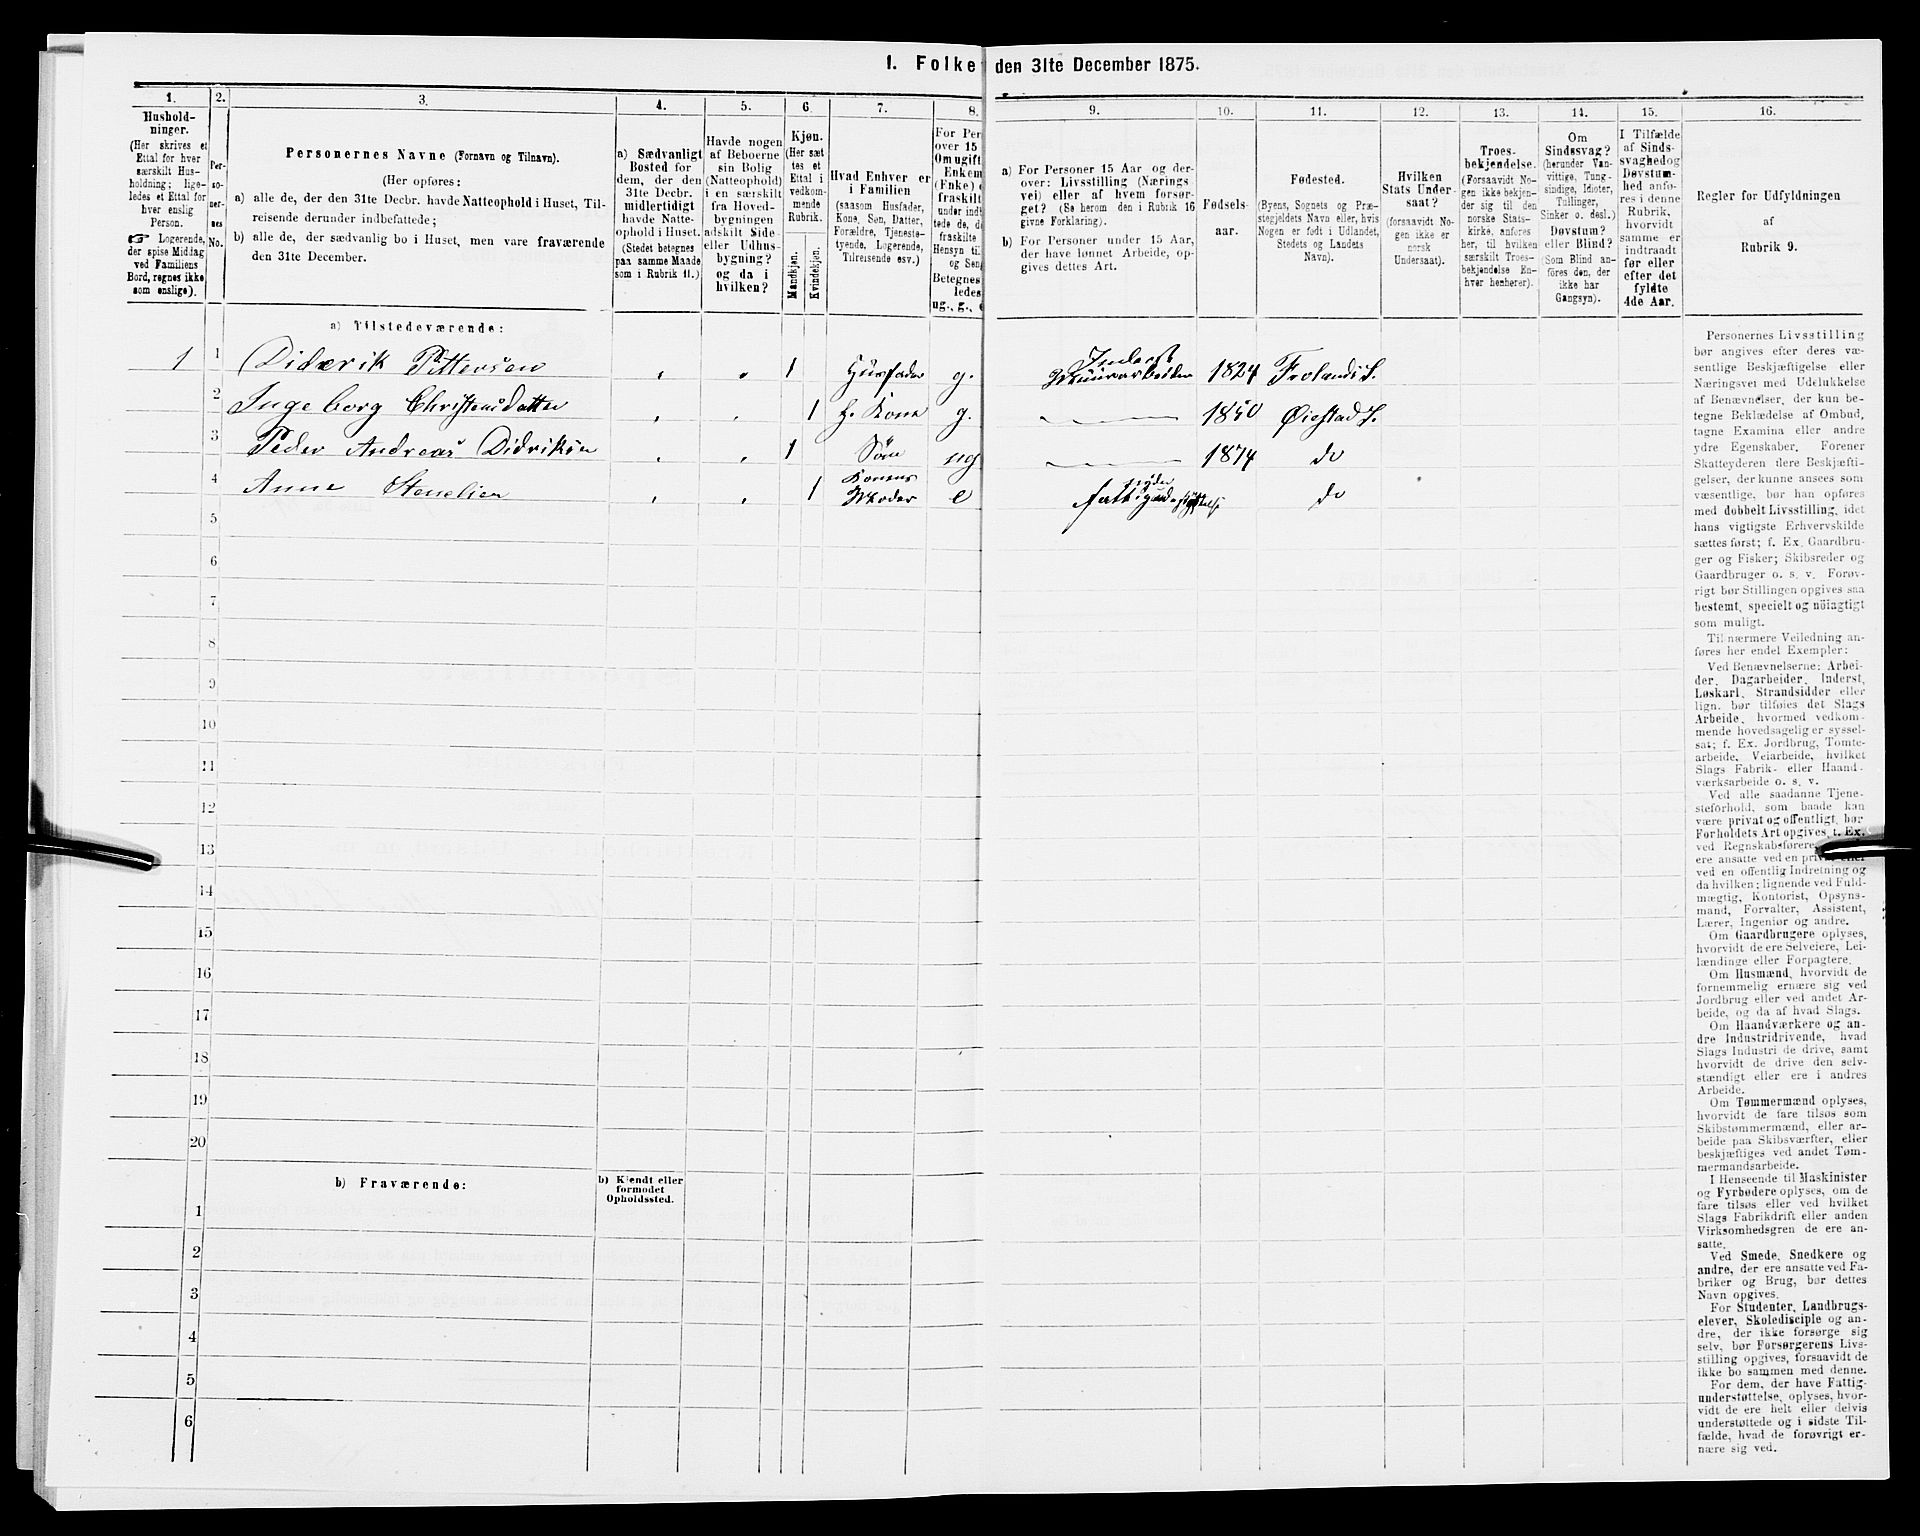 I. Folke den 31te December 1875.
1. 2. 3. 4. 5. 6. 7. 8. 9. 10. 11. 12. 13. 14. 15. 16.
Hushold-
ninger.
(Her skrives et
Ettal for hver
særskilt Hus-
holdning; lige-
ledes et Ettal for
hver enslig
Person.
☞ Logerende,
der spise Middag
ved Familiens
Bord, regnes ikke
som enslige).
Per-
so-
ner-
nes
No.
Personernes Navne (Fornavn og Tilnavn).
(Her opføres:
a) alle de, der den 31te Decbr. havde Natteophold i Huset, Til-
reisende derunder indbefattede;
b) alle de, der sædvanlig bo i Huset, men vare fraværende
den 31te December.
a) Sædvanligt
Bosted for
dem, der den
31te Decbr.
midlertidigt
havde Natte-
ophold i Huset.
(Stedet betegnes
paa samme Maade
som i Rubrik 11.)
Havde nogen
af Beboerne
sin Bolig
(Natteophold)
i en særskilt
fra Hoved-
bygningen
adskilt Side-
eller Udhus-
bygning?
og da i
hvilken?
Kjøn.
(Her sæt
tes et
Ettal i
vedkom-
mende
Rubrik.
Mandkjøn.
Kvindekjøn.
Hvad Enhver er
i Familien
(saasom Husfader,
Kone, Søn, Datter,
Forældre, Tjeneste-
tyende, Logerende,
Tilreisende osv.)
For Per
over 15
Om ugift
Enkem
(Enke) e
fraskilt
under indb
tede de, d
fraskilte
Hensyn til
og Seng
Betegnes
ledes
ug., g., e
a) For Personer 15 Aar og der-
over: Livsstilling (Nærings
vei) eller af hvem forsør-
get? (Se herom den i Rubrik 16
givne Forklaring).
b) For Personer under 15 Aar,
der have lønnet Arbeide, op-
gives dettes Art.
Fødsels-
aar.
Fødested.
(Byens, Sognets og Præ-
stegjeldets Navn eller, hvis
Nogen er født i Udlandet,
Stedets og Landets
Navn).
Hvilken
Stats Under-
saat?
(forsaavidt No-
gen ikke er
norsk
Undersaat).
Troes-
bekjendelse.
(Forsaavidt No-
gen ikke bekjen-
der sig til den
norske Stats-
kirke, anføres
her, til hvilken
særskilt Troes-
bekjendelse En-
hver henhører).
Om
Sindssvag?
(herunder Van-
vittige, Tung-
sindige, Idioter,
Tullinger,
Sinker o. desl.)
Døvstum?
eller Blind?
(Som Blind an-
føres den, der
ikke har
Gangsyn).
I Tilfælde
af Sinds-
svaghed og
Døvstum-
hed anfø-
res i denne
Rubrik,
hvorvidt
samme er
indtraadt
før eller
efter det
fyldte
4de Aar.
Regler for Udfyldningen
af
Rubrik 9.
a) Tilstedeværende:
1 1 Diderik Pettersen 1 Husfader g. Inderst Muurarbeider 1824 Frolands S.
2 Ingeborg Christensdatter 1 h. Kone g. 1850 Øiestad S.
3 Peder Andreas Didriksen 1 Søn ug 1874 do
4 Anne 1 Konens Moder e nyder do
5
6
7
8
9
10
11
12
13
14
15
16
17
18
19
20
b) Fraværende: b) Kjendt eller
formodet
Opholdssted.
1
2
3
4
5
6
Personernes Livsstilling
bør angives efter deres væ-
sentlige Beskjæftigelse eller
Næringsvei med Udelukkelse
af Benævnelser, der kun be-
tegne Beklædelse af Ombud,
tagne Examina eller andre
ydre Egenskaber. Forener
Skatteyderen flere Beskjæfti-
gelser, der kunne ansees som
væsentlige, bør han opføres
med dobbelt Livsstilling, idet
hans vigtigste Erhvervskilde
sættes først; f. Ex. Gaardbru-
ger og Fisker; Skibsreder og
Gaardbruger o. s. v. Forøv-
rigt bør Stillingen opgives saa
bestemt, specielt og nøiagtigt
som muligt.
Til nærmere Veiledning an-
føres her endel Exempler:
Ved Benævnelserne: Arbei-
der, Dagarbeider, Inderst,
Løskarl, Strandsidder eller
lign. bør tilføies det Slags
Arbeide, hvormed vedkom-
mende hovedsagelig er syssel-
sat; f. Ex. Jordbrug, Tomte-
arbeide, Veiarbeide, hvilket
Slags Fabrik- eller Haand-
værksarbeide o. s. v.
Ved alle saadanne Tjene-
steforhold, som baade kan
være privat og offentligt, bør
Forholdets Art opgives, t. Ex.
ved Regnskabsførere,
ere ansatte ved en privat eller
ved en offentlig Indretning og
da hvilken; lignende ved Fuld-
mægtig, Kontorist, Opsyns-
mand, Forvalter, Assistent,
Lærer, Ingeniør og andre.
Om Gaardbrugere oplyses,
hvorvidt de ere Selveiere, Lei-
lændinge eller Forpagtere.
Om Husmænd, hvorvidt de
fornemmelig ernære sig ved
Jordbrug eller ved andet Ar-
beide, og da af hvad Slags.
Om Haandværkere og an-
dre Industridrivende, hvad
Slags Industri de drive, samt
hvorvidt de drive den selv-
stændigt eller ere i andres
Arbeide.
Om Tømmermænd oplyses,
hvorvidt de fare tilsøs som
Skibstømmermænd, eller ar-
beide paa Skibsværfter, eller
beskjæftiges ved andet Tøm-
mermandsarbeide.
I Henseende til Maskinister
og Fyrbødere oplyses, om de
fare tilsøs eller ved hvilket
Slags Fabrikdrift eller anden
Virksomhedsgren de ere an-
satte.
Ved Smede, Snedkere og
andre, der ere ansatte ved Fa-
briker og Brug, bør dettes
Navn opgives.
For Studenter, Landbrugs-
elever, Skoledisciple og an-
dre, der ikke forsørge sig
selv, bør Forsørgerens Livs-
stilling opgives, forsaavidt de
ikke bo sammen med denne.
For dem, der have Fattig-
understøttelse, oplyses, hvor-
vidt de ere helt eller delvis
understøttede og i sidste Til-
fælde, hvad de forøvrigt er-
nære sig ved.